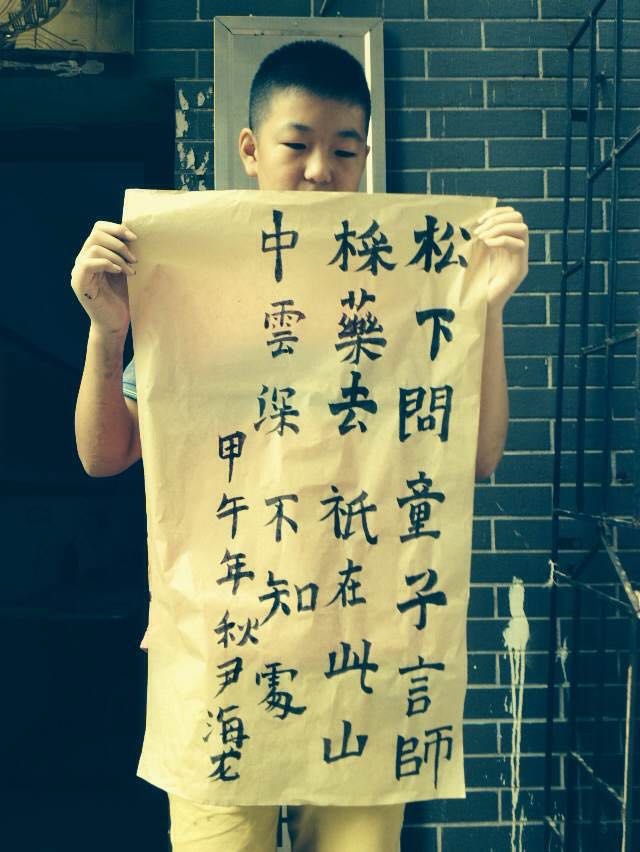 松下問童子言師
採藥去祇在此山
中雲深不知處
甲午年秋尹海龙